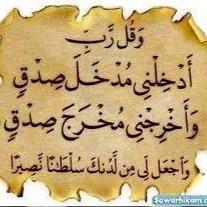 وَقُل رَّبِّ
أَدْخِلْنِي مُدْخَلَ صِدْقٍ
وَأَخْرِجْنِي مُخْرَجَ صِدْقٍ
وَاجْعَل لِّي مِن لَّدُنكَ سُلْطَانًا نَّصِيرًا
Sowarhikam.com